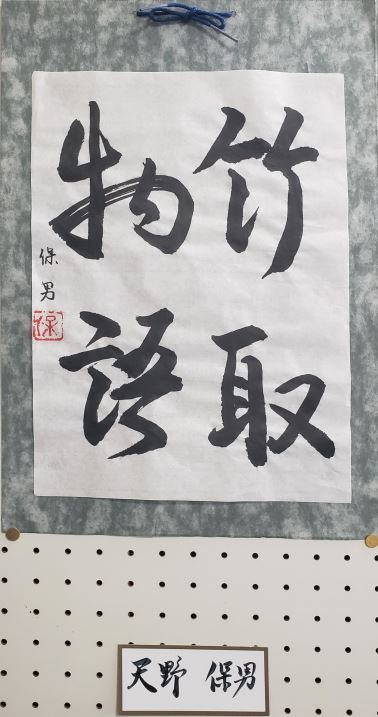 竹取
物語
保男
保
天野 保男